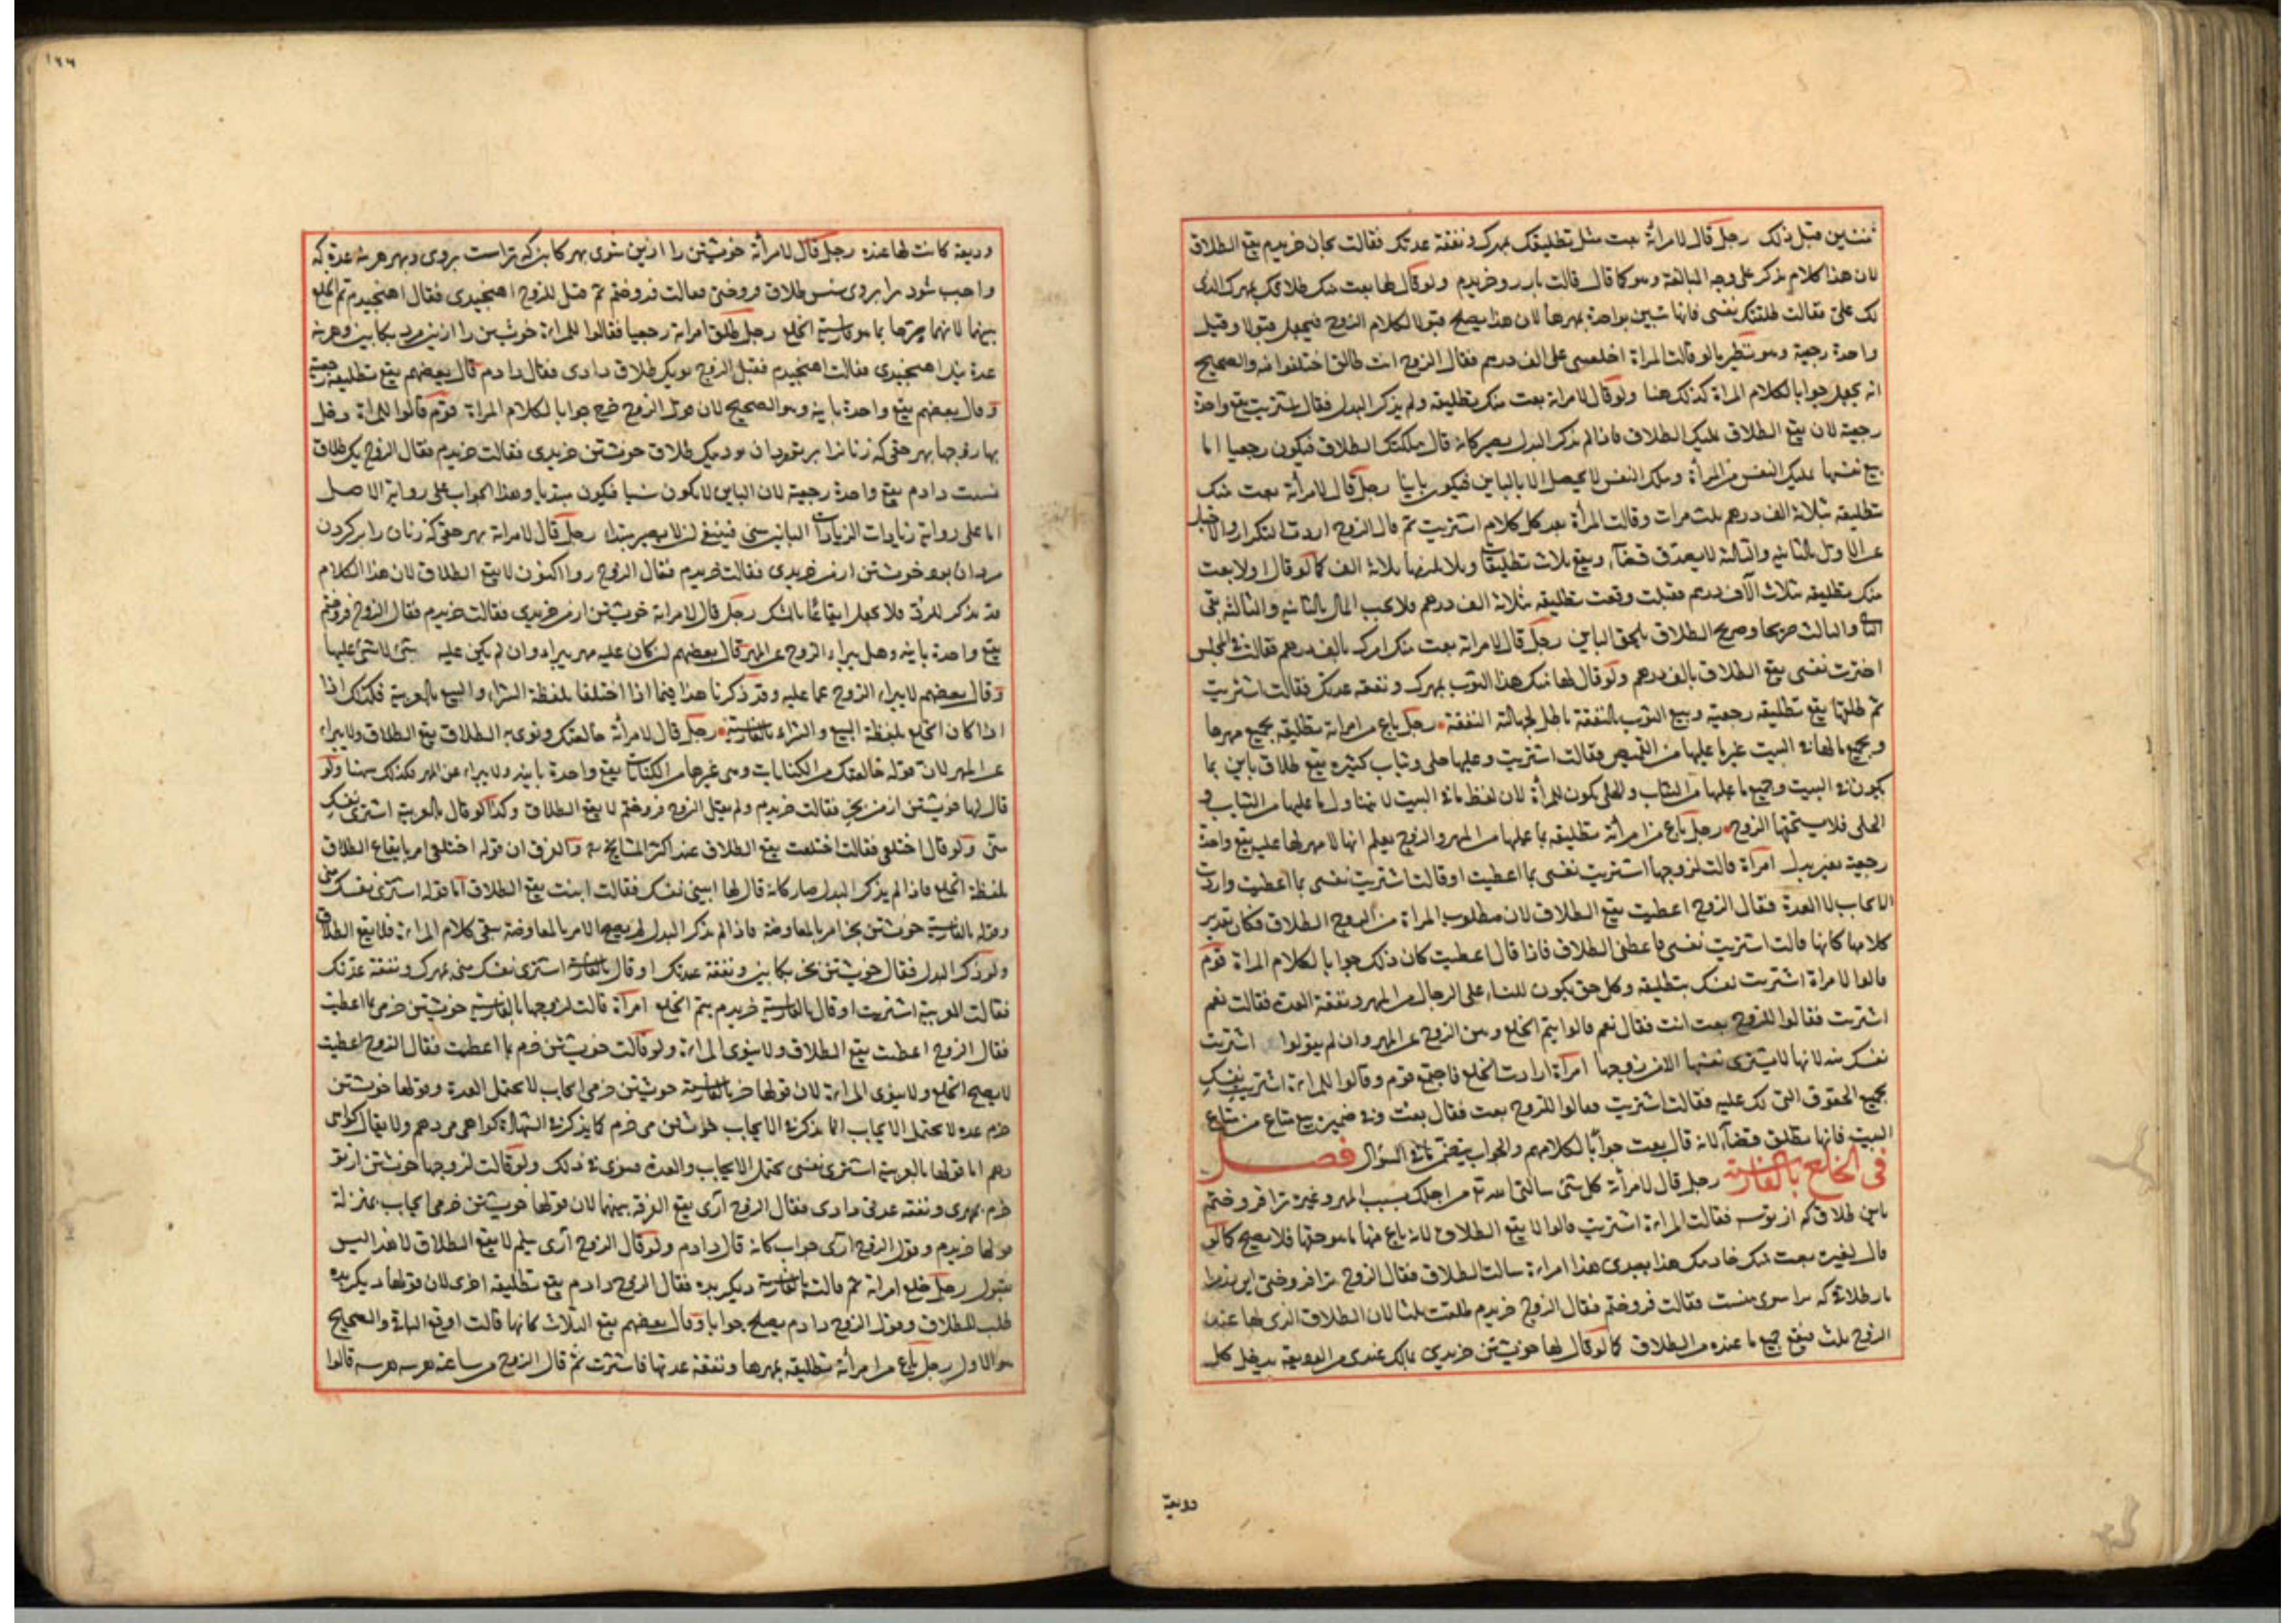 قبل ذلك رجل قال لامرأته بعت منك تطليقك بمهرك ونفقة عدتك فقالت بجان خريدم يقع الطلاق
لان هذا كلام يذكر على وجه المبالغة وهو كما قال قالت بارزو خريدم ولو قال لها بعت منك طلاقك بمهرك الذى
لك على فقالت طلقت نفسى فانها تبين بواحدة بمهرها لان هذا يصلح قبولا لكلام الزوج فيجعل قبولا وقيل
واحدة رجعية وهو نظير ما لو قالت المراة اخلعنى على الف درهم فقال الزوج انت طالق اختلفوا فيه والصحيح
انه يجعل جوابا لكلام المراة كذلك هنا ولو قال لامراته بعت منك تطليقة ولم يذكر البدل فقال اشتريت يقع واحدة
رجعية لان بيع الطلاق تمليك الطلاق فاذا لم يذكر البدل يصير كانه قال ملكتك الطلاق فيكون رجعيا اما
بيع نفسها تمليك النفس من المرأة وملك النفس لا يحصل الا بالباين فيكون باينا رجل قال لامرأته بعت منك
تطليقة بثلاثة الف درهم ثلث مرات وقالت المرأة بعد كل كلام اشتريت ثم قال الزوج اردت التكرار والاخبار
عن الاول بالثانية والثالثة لا يصدق قضاء ويقع ثلاث تطليقات ولا يلزمها ثلاثة الف كما لو قال اولا بعت
منك تطليقة بثلاث آلاف درهم فقبلت وقعت تطليقة بثلاثة الف درهم فلا يجب المال بالثانية والثالثة بقى
الثانى والثالث صريحا وصريح الطلاق يلحق الباين رجل قال لامراته بعت منك امرك بالف درهم فقالت فى المجلس
اخترت نفسى يقع الطلاق بالف درهم ولو قال لها منك هذا الثوب بمهرك ونفقة عدتك فقالت اشتريت
ثم طلقها يقع تطليقة رجعية وبيع الثوب بالنفقة باطل لجهالة النفقة رجل باع من امراته تطليقة بجميع مهرها
وبجميع ما لها فى البيت غير ما عليها من القميص فقالت اشتريت وعليها حلى وثياب كثيرة يقع طلاق باين بما
يكون فى البيت وجميع ما عليها من الثياب والحلى يكون للمرأة لان لفظ ما فى البيت لا يتناول ما عليها من الثياب و
الحلى فلا يستحقها الزوج رجل باع من امرأته تطليقة بما عليها من المهر والزوج يعلم انها لا مهر لها عليه يقع واحدة
رجعية بغير بدل امرأة قالت لزوجها اشتريت نفسى بما اعطيت او قالت اشتريت نفسى بما اعطيت وارادت
الايجاب لا العدة فقال الزوج اعطيت يقع الطلاق لان مطلوب المراة من الزوج الطلاق فكان تقدير
كلامها كانها قالت اشتريت نفسى فاعطنى الطلاق فاذا قال اعطيت كان ذلك جوابا لكلام المراة قوم
قالوا لامراة اشتريت نفسك بتطليقة وكل حق يكون للنساء على الرجال من المهر ونفقة العدة فقالت نعم
اشتريت فقالوا للزوج بعت انت فقال نعم قالوا يتم الخلع ويبرئ الزوج عن المهر وان لم يقولوا اشتريت
نفسك منه لانها لا يشترى نفسها الا من زوجها امرأة ارادت الخلع فاجتمع قوم وقالوا للمراءة اشتريت نفسك
بجميع الحقوق التى لك عليه فقالت اشتريت فقالوا للزوج بعت فقال بعت وفى ضمين بيع متاع من متاع
البيت فانها تطلق قضاء لانه قال بعت جوابا لكلامهم والجواب يتضمن ما فى السؤال فصل
فى الخلع بالفارسية رجل قال لامرأته كل شئ سالتى الله تع من اجلك بسبب المهر وغيره ترا فروختم
باين طلاق كه از توسه فقالت المراءة اشتريت قالوا لا يقع الطلاق لانه باع منها ما هو حقها فلا يصح كما لو
قال لغيره بعت منك خادمك هذا بعبدى هذا امراءة سالت الطلاق فقال الزوج مرا فروختى اين
بار طلاق كه مرا سوى تست فقالت فروختم فقال الزوج خريدم طلقت ثلثا لان الطلاق الذى لها عند
الزوج ثلث فيقع جميع ما عنده من الطلاق كما لو قال لها خويشتن خريدى بمالك عندى من الوديعة يدخل كل
وديعة
١٩٩
وديعة كانت لها عنده رجل قال لامرأته خويشتن را ازين شوى بهر كابين كه تراست بروى وبهر هزينه عدة كه
واجب شود مرا بروى بسه طلاق فروختى فقالت فروختم ثم قيل للزوج اهنجيدى فقال اهنجيدم تم الخلع
بينهما لانهما صرحا بما هو فارسية الخلع رجل طلق امراته رجعيا فقالوا للمراءة خويشتن را ازين مرد بكابين وهزينه
عدة اهنجيدى فقالت اهنجيدم فقيل للزوج تو يك طلاق دادى فقال دادم قال بعضهم يقع تطليقة رجعية
وقال بعضهم يقع واحدة باينة وهو الصحيح لان قول الزوج خرج جوابا لكلام المراة قوم قالوا للمراة دخل
بها زوجها بهر حقى كه زنانرا بر شويان بود بيك طلاق خويشتن خريدى فقالت خريدم فقال الزوج يك طلاق
نسبت دادم يقع واحدة رجعية لان الباين لا يكون سنيا فيكون مبتديا وهذا الجواب على رواية الاصل
اما على رواية زيادات الزيادات الباين سنى فينبغى ان لا يصير مبتدا رجل قال لامراته بهر حقى كه زنان را بر كردن
مردان بود خويشتن ازمن خريدى فقالت خريدم فقال الزوج روا اكنون لا يقع الطلاق لان هذا الكلام
قد يذكر للرد فلا يجعل ايقاعا بالشك رجل قال لامراته خويشتن ازمن خريدى فقالت خريدم فقال الزوج فروختم
يقع واحدة باينة وهل يبراء الزوج عن المهر قال بعضهم ان كان عليه مهر يبراء وان لم يكن عليه شئ لا شئ عليها
وقال بعضهم لا يبراء الزوج عما عليه وقد ذكرنا هذا فيما اذا اختلفا بلفظة الشراء والبيع بالعربية فكذلك اذا
اذا كان الخلع بلفظة البيع والشراء بالفارسية رجل قال لامرأته خالعتك ونوى به الطلاق يقع الطلاق ولا يبراء
عن المهر لان قوله خالعتك من الكنايات وفى غيرها من الكنايات يقع واحدة باينة ولا يبراء عن المهر فكذلك ههنا ولو
قال لها خويشتن ازمن بخر فقالت خريدم ولم يقل الزوج فروختم لا يقع الطلاق وكذا لو قال بالعربية اشترى نفسك
منى ولو قال اختلعى فقالت اختلعت يقع الطلاق عند اكثر المشايخ والفرق ان قوله اختلعى امر بايقاع الطلاق
بلفظة الخلع فاذا لم يذكر البدل صار كانه قال لها ابينى نفسك فقالت ابنت يقع الطلاق اما قوله اشترى نفسك منى
وقوله بالفارسية خويشتن بخر امر بالمعاوضة فاذا لم يذكر البدل لم يصح الامر بالمعاوضة بقى كلام المراءة فلا يقع الطلاق
ولو ذكر البدل فقال خويشتن بخر بكابين ونفقة عدتك او قال بالعربية اشترى نفسك منى بمهرك ونفقة عدتك
فقالت بالعربية اشتريت او قال بالفارسية خريدم يتم الخلع امرأة قالت لزوجها بالفارسية خويشتن خرم بما اعطيت
فقال الزوج اعطيت يقع الطلاق ولا ينوى المراءة ولو قالت خويشتن خرم بما اعطيت فقال الزوج اعطيت
لا يصح الخلع ولا ينوى المراءة لان قولها بالفارسية خويشتن خرمى ايجاب لا يحتمل العدة وقولها خويشتن
خرم عدة لا يحتمل الايجاب انما يذكر فى الايجاب خويشتن مى خرم كما يذكر فى الشهادة كواهى مى دهم ولا يقال كواهى
دهم اما قولها بالعربية اشترى نفسى يحتمل الايجاب والعدة فينوى فى ذلك ولو قالت لزوجها خويشتن ازتو
خرم بمهرى ونفقة عدتى دادى فقال الزوج آرى يقع الفرقة بينهما لان قولها خويشتن خرمى ايجاب بمنزلة
قولها خريدم وقول الزوج آرى جواب كانه قال دادم ولو قال الزوج آرى بيلم لا يقع الطلاق لان هذا ليس
بقبول رجل خلع امراته ثم قالت بالفارسية ديكر بده فقال الزوج دادم يقع تطليقة اخرى لان قولها ديكر بده
طلب للطلاق وقول الزوج دادم يصلح جوابا وقال بعضهم يقع الثلاث كانها قالت اوقع الباقى والصحيح
هو الاول رجل باع من امرأته تطليقة بمهرها ونفقة عدتها فاشترت ثم قال الزوج من ساعته هر سه هر سه قالوا